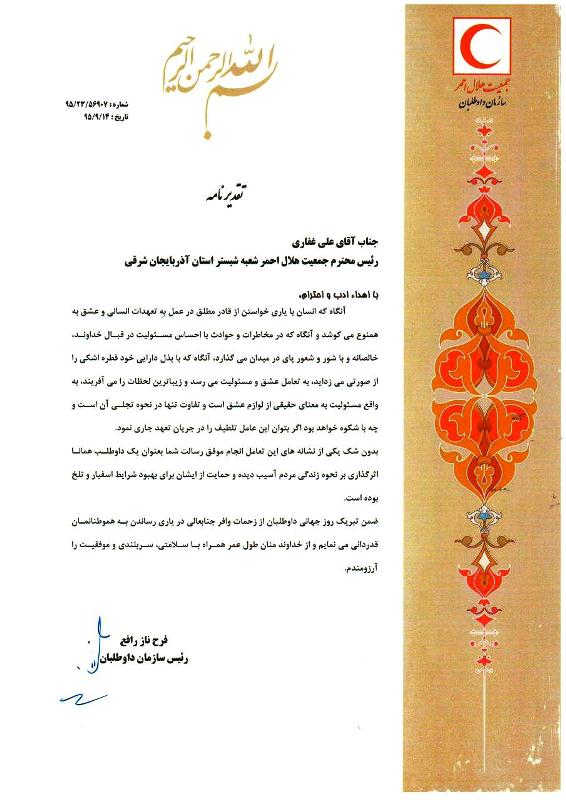 بسم الله الرحمن الرحیم
جمعیت هلال احمر
سازمان داوطلبان
شماره : ۹۵/۲۳/۵۶۹۰۷
تاریخ : ۹۵/۹/۱۴
تقدیرنامه
جناب آقای علی غفاری
رئیس محترم جمعیت هلال احمر شعبه شبستر استان آذربایجان شرقی
با اهداء ادب و احترام،
آنگاه که انسان با یاری خواستن از قادر مطلق در عمل به تعهدات انسانی و عشق به
همنوع می کوشد و آنگاه که در مخاطرات و حوادث با احساس مسئولیت در قبال خداوند،
خالصانه و با شور و شعور پای در میدان می گذارد، آنگاه که با بذل دارایی خود قطره اشکی را
از صورتی می زداید، به تعامل عشق و مسئولیت می رسد و زیباترین لحظات را می آفریند، به
واقع مسئولیت به معنای حقیقی از لوازم عشق است و تفاوت تنها در نحوه تجلی آن است و
چه با شکوه خواهد بود اگر بتوان این عامل تلطیف را در جریان تعهد جاری نمود.
بدون شک یکی از نشانه های این تعامل انجام موفق رسالت شما بعنوان یک داوطلب همانا
اثرگذاری بر نحوه زندگی مردم آسیب دیده و حمایت از ایشان برای بهبود شرایط اسفبار و تلخ
بوده است.
ضمن تبریک روز جهانی داوطلبان از زحمات وافر جنابعالی در یاری رساندن به هموطنانمان
قدردانی می نمایم و از خداوند منان طول عمر همراه با سلامتی، سربلندی و موفقیت را
آرزومندم.
فرح ناز رافع
رئیس سازمان داوطلبان